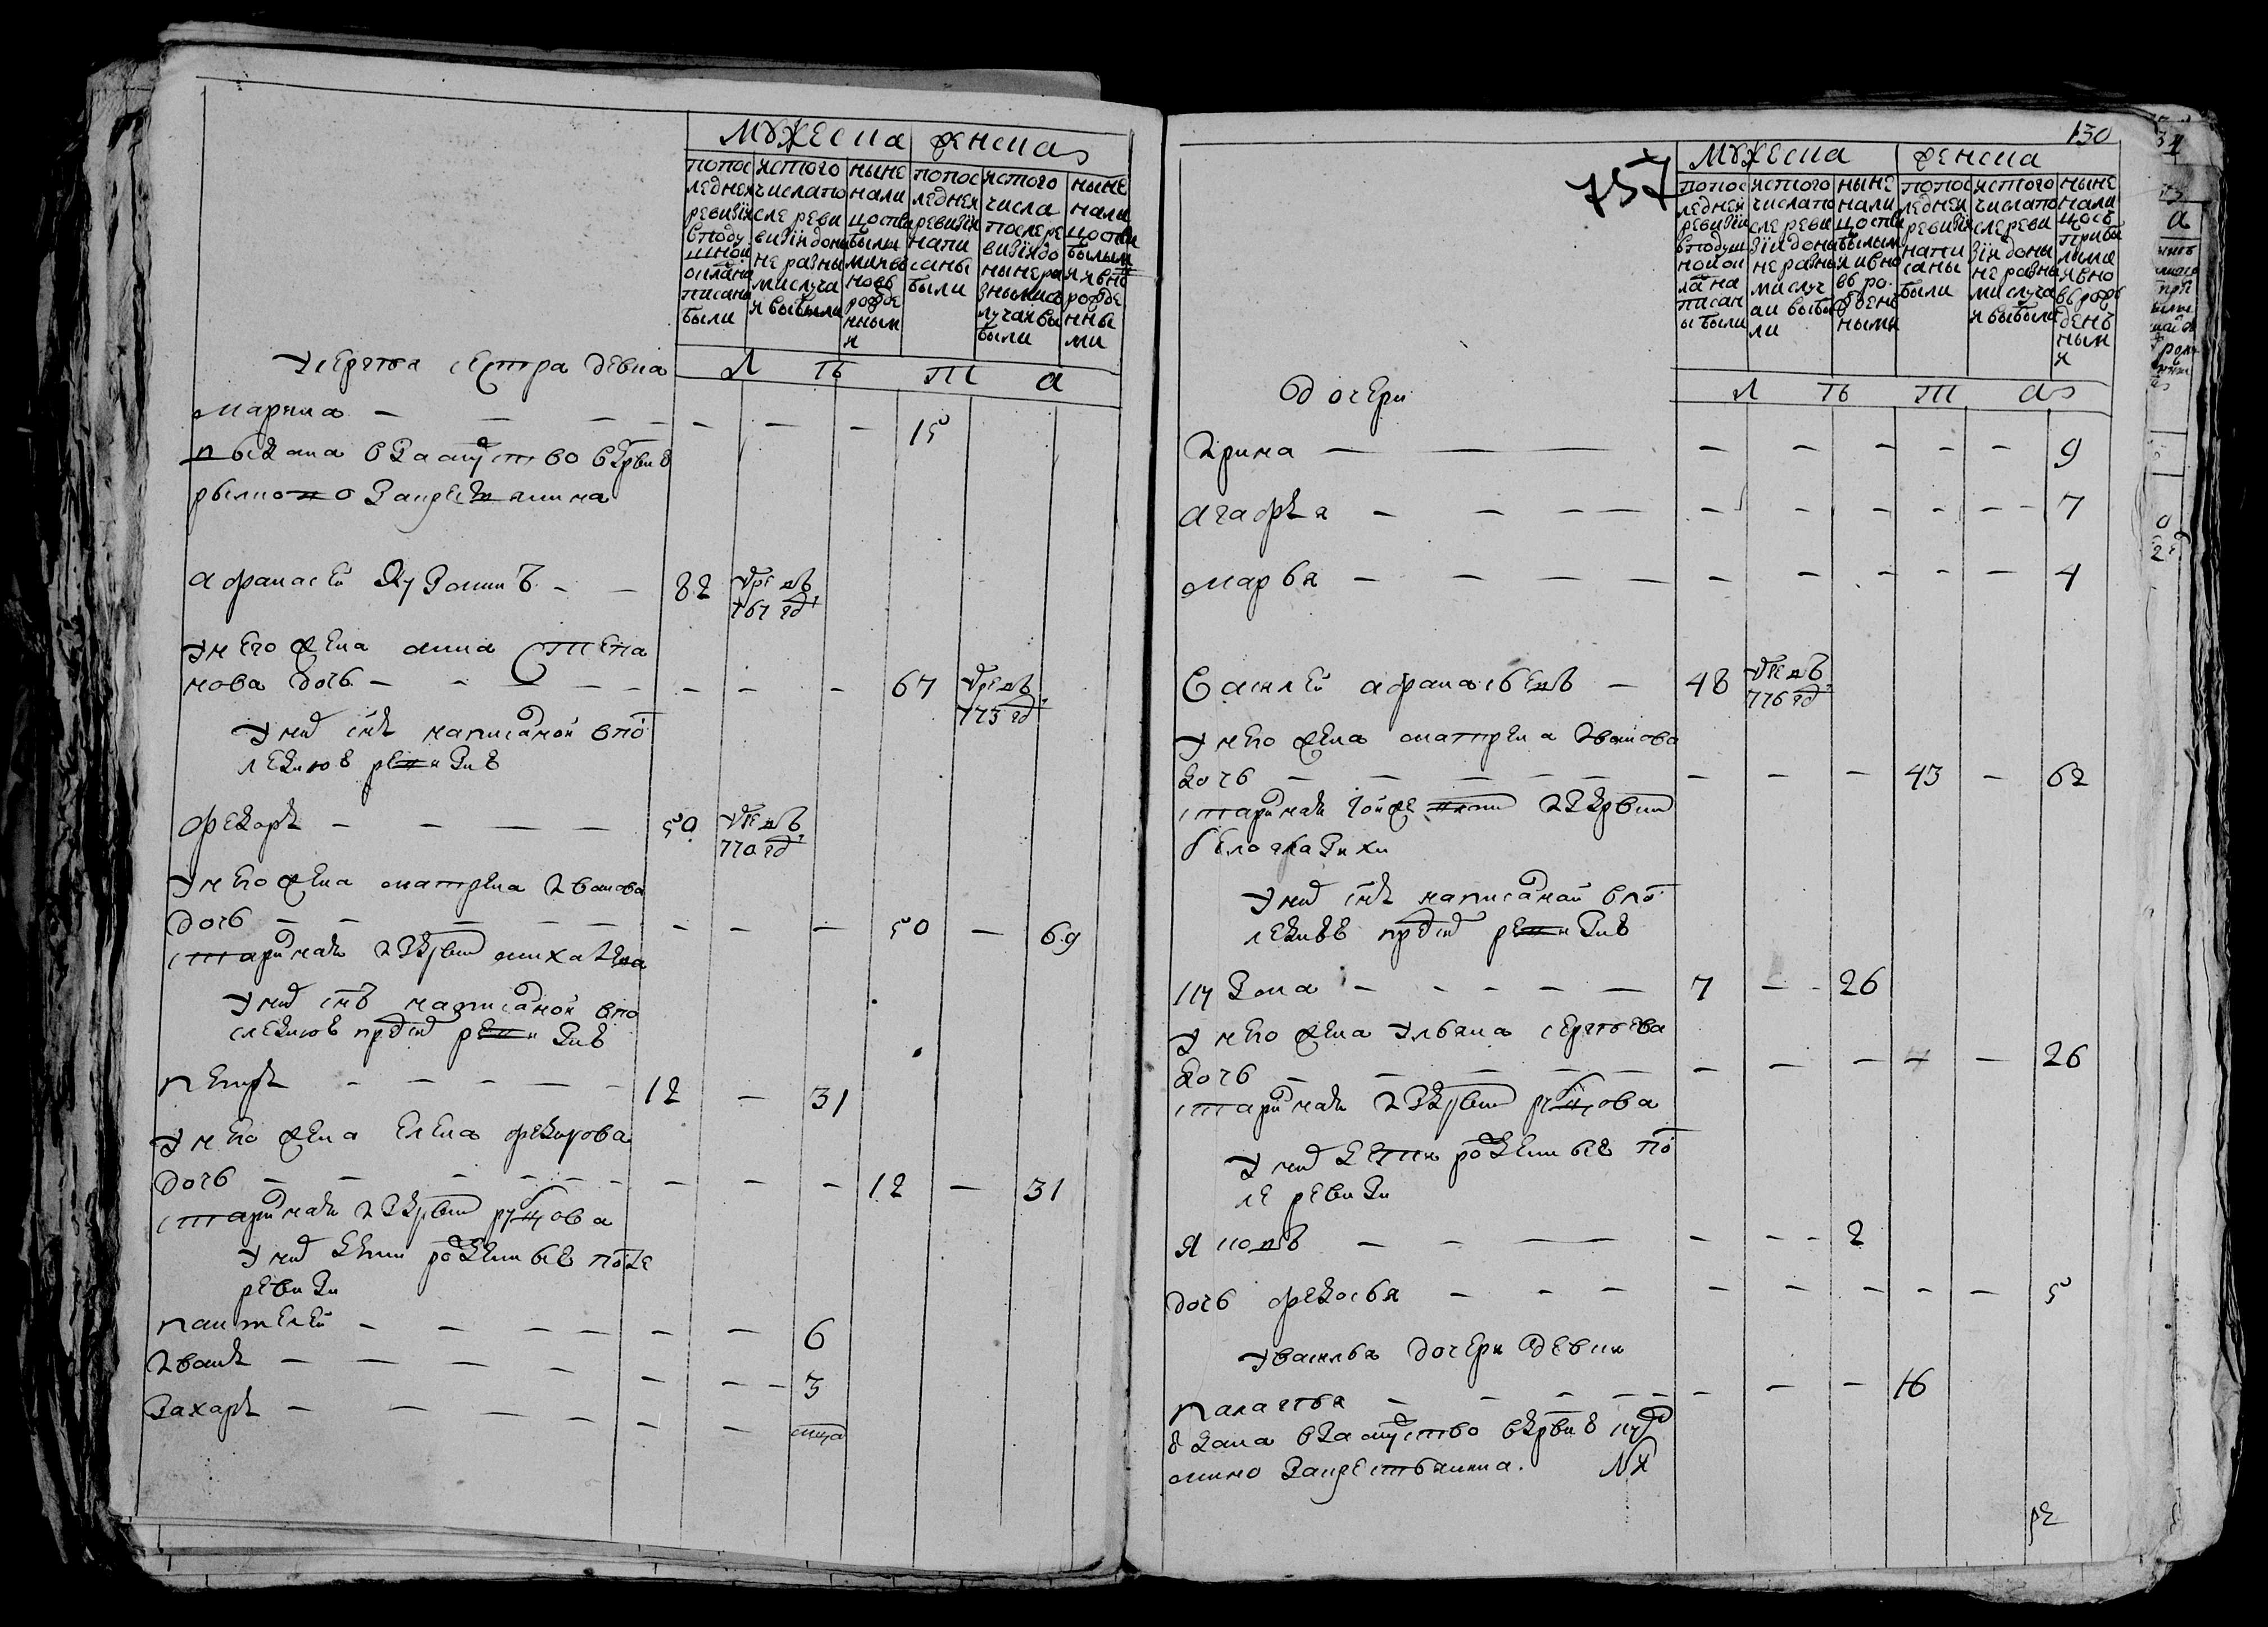 мужеска женска
попос ледней ревизiи в поду шной окла на писаны были
ис того числа по сле реви визiи до ны не разны ми слу ча и выбыли
ныне на ли цо с при былыми и вновь рожде нным и
попос ледней ревизiи напи саны были
ис того числа после ре визiи до ныне ра зными с лучаи вы были
ныне нали цо с при былым и и вно рожде нны ми
л ѣ т а
у сергея сестра девка
марина — — — — — — 15
выдана в замужство в
афанасей кузмин — — 82 умре въ 767 год
у него жена анна степа
нова дочь — — — — — — — 67 умре въ 773 год
у них сн написаной в по
ледню ревизию
федоръ — — — — 50 умре въ 770 год
у него жена матрена иванова
дочь — — — — — — — — 50 — 69
старинная из дрвни михалева
у них снъ написаной в по
следнюю пред сию ревизию
петръ — — — — — 12 — 31
у него жена елена федорова
дочь — — — — — — — — — 12 — 31
старинная из дрвни
у них дети рожденные после
ревизи
пантелей — — — — — — 6
иванъ — — — — — — — 3
захаръ — — — — — —
130
757
мужеска женска
попос ледней ревизiи в подуш ной ок ла на писан ы были
ис того числа по сле реви зiи до ны не разны ми случ аи выбы ли
ныне нали цо с при былым и и вно вь ро жденъ ными
попос ледней ревизiи напи саны были
ис того числа по сле реви зiи до ны не разны ми слу ча и выбыли
ныне нали цо съ прибы лыми и вно вь рож денъ ным и
л ѣ т а
дочери
ирина — — — — — — — — 9
агафья — — — — — — — — — — 7
марья — — — — — — — — — 4
василей афанасьевъ — 48 умре въ 776 год
у него жена матрена иванова
дочь — — — — — — — — 43 — 62
старинная той же из дрвни
белоглазихи
у них сн написаной в по
ледню пред сию ревизию
кузма — — — — — 7 — — 26
у него жена ульяна сергеева
дочь — — — — — — — — 4 — 26
старинная из дрвни
у них дети рожденные по
ле ревизи
яковъ — — — — — — — 2
дочь федосья — — — — — — — — — 5
у василья дочери девки
палагея — — — — — — — — 16
выдана в замужство в дрвню